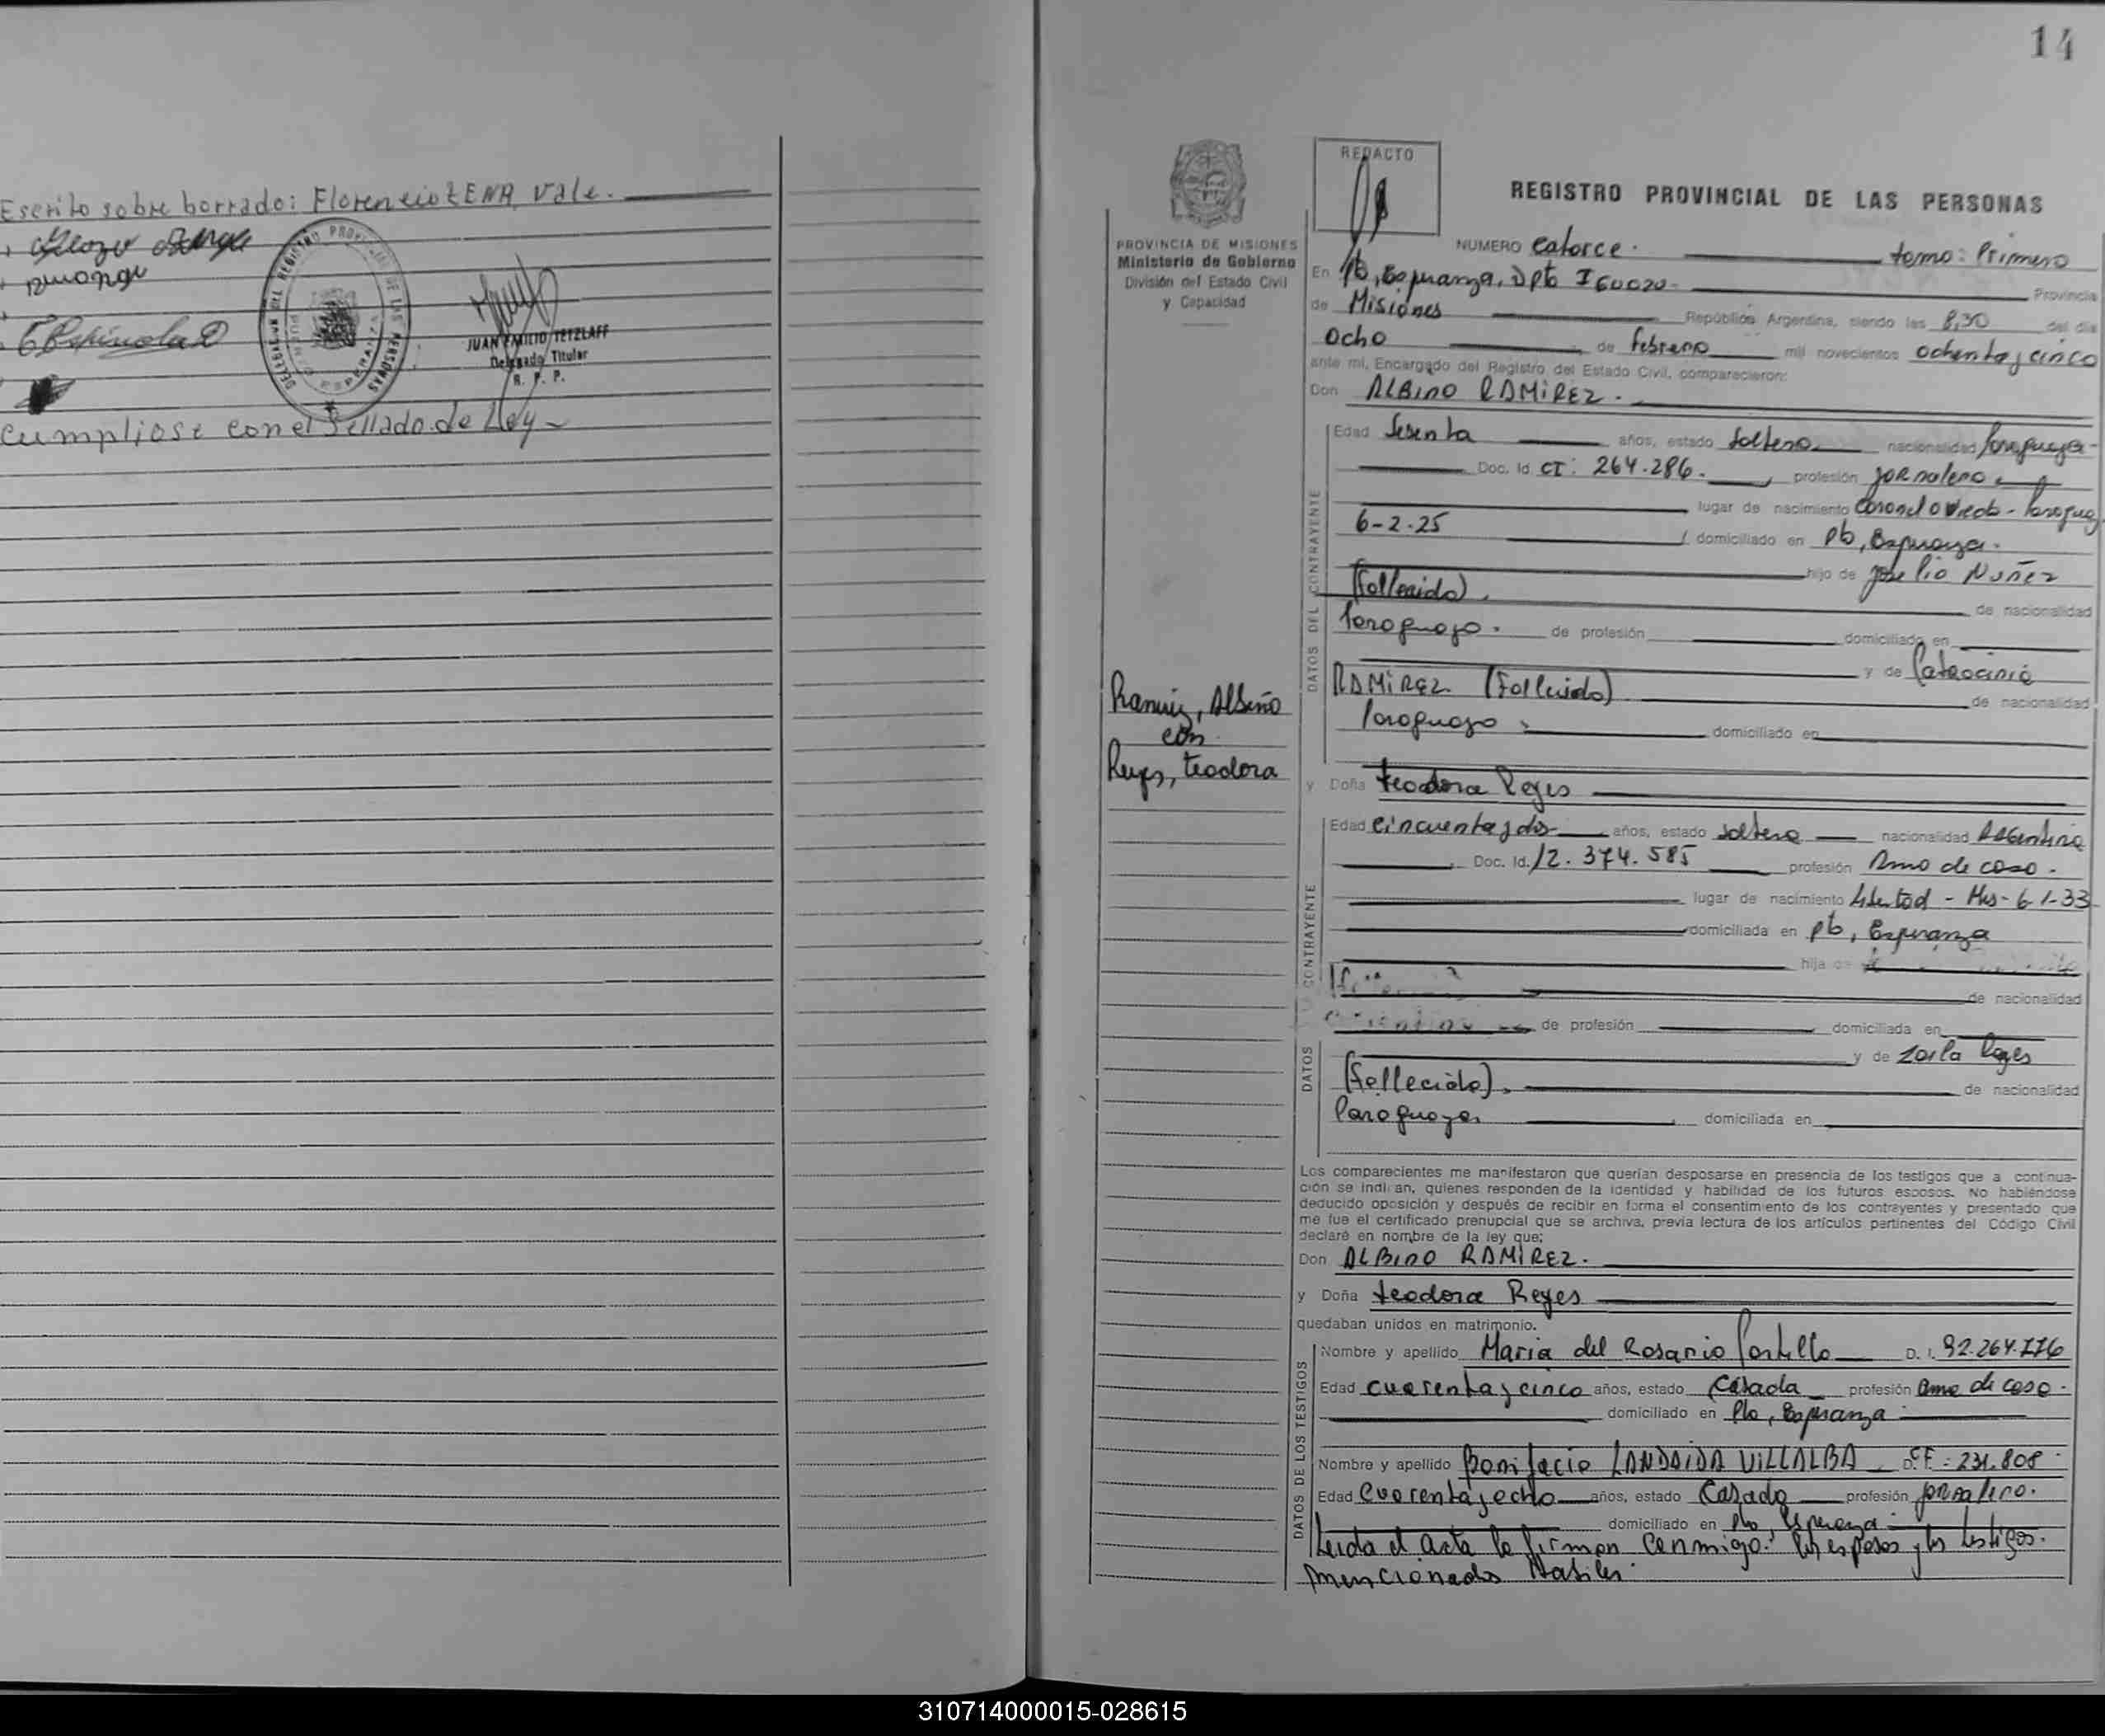 Escrito sobre borrado: Florencio LENA, Vale.
DELEGACION DEL REGISTRO PROVINCIAL DE LAS PERSONAS
PUERTO ESPERANZA
JUAN EMILIO TETZLAFF
Delegado Titular
R. P. P.
Cumpliose con el Sellado de Ley
14
REDACTO
REGISTRO PROVINCIAL DE LAS PERSONAS
PROVINCIA DE MISIONES
Ministerio de Gobierno
División del Estado Civil
y Capacidad
NUMERO Catorce. tomo: Primero
En Pto, Esperanza, Dpto IGUAZU. Provincia
de Misiones República Argentina, siendo las 8,30 del día
ocho de febrero mil novecientos ochenta y cinco
ante mi, Encargado del Registro del Estado Civil, comparecieron:
Don ALBINO RAMIREZ.
DATOS DEL CONTRAYENTE
Edad Sesenta años, estado Soltero nacionalidad Paraguaya
Doc. Id. CI: 264.286. profesión jornalero
lugar de nacimiento Coronel Oviedo - Paraguay
6-2-25 domiciliado en Pto, Esperanza.
hijo de José Pio Nuñez
(Fallecido). de nacionalidad
Paraguayo. de profesión domiciliado en
y de Patrocinia
RAMIREZ (Fallecida) de nacionalidad
Paraguaya domiciliado en
Ramirez, Albino
con
Reyes, teodora
y Doña teodora Reyes
DATOS CONTRAYENTE
Edad cincuenta y dos años, estado soltera nacionalidad Argentina
Doc. Id. 12.374.585 profesión Ama de casa.
lugar de nacimiento Libertad - Mis - 6-1-33
domiciliada en Pto, Esperanza
hija de
de nacionalidad
de profesión domiciliada en
y de Zoila Reyes
(Fallecida). de nacionalidad
Paraguaya domiciliada en
Los comparecientes me manifestaron que querían desposarse en presencia de los testigos que a continua-
ción se indican, quienes responden de la identidad y habilidad de los futuros esposos. No habiéndose
deducido oposición y después de recibir en forma el consentimiento de los contrayentes y presentado que
me fue el certificado prenupcial que se archiva, previa lectura de los artículos pertinentes del Código Civil
declaré en nombre de la ley que:
Don ALBINO RAMIREZ.
y Doña teodora Reyes
quedaban unidos en matrimonio.
DATOS DE LOS TESTIGOS
Nombre y apellido Maria del Rosario Portillo D. I. 92.264.776
Edad cuarenta y cinco años, estado Casada profesión ama de casa.
domiciliado en Pto, Esperanza
Nombre y apellido Bonifacio LANDAIDA VILLALBA 231.808
Edad cuarenta y ocho años, estado Casado profesión jornalero.
domiciliado en Pto, Esperanza.
Leida el acta la firman conmigo: los esposos y los testigos.
mencionados Habiles.
310714000015-028615